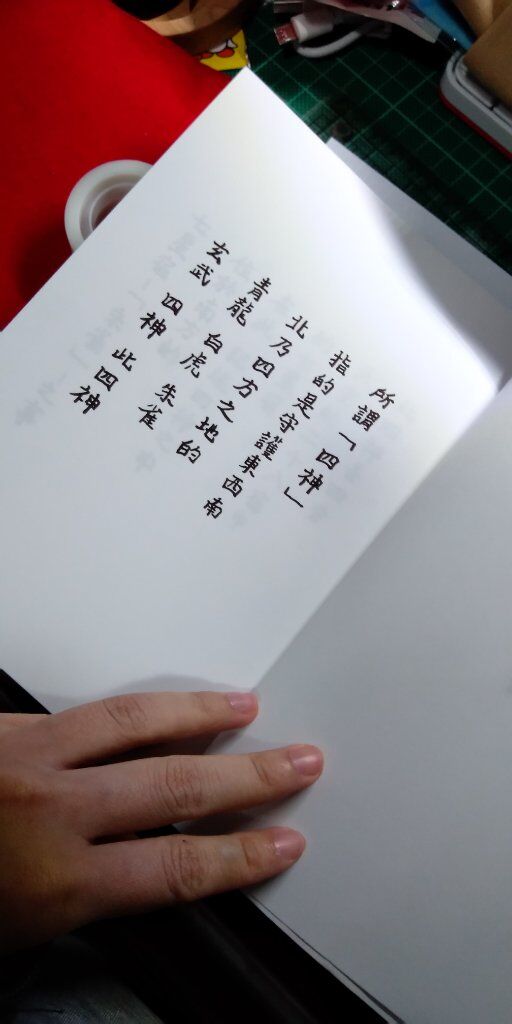 所謂「四神」
指的是守護東西南
北乃四方之地的
青龍 白虎 朱雀
玄武 四神 此四神